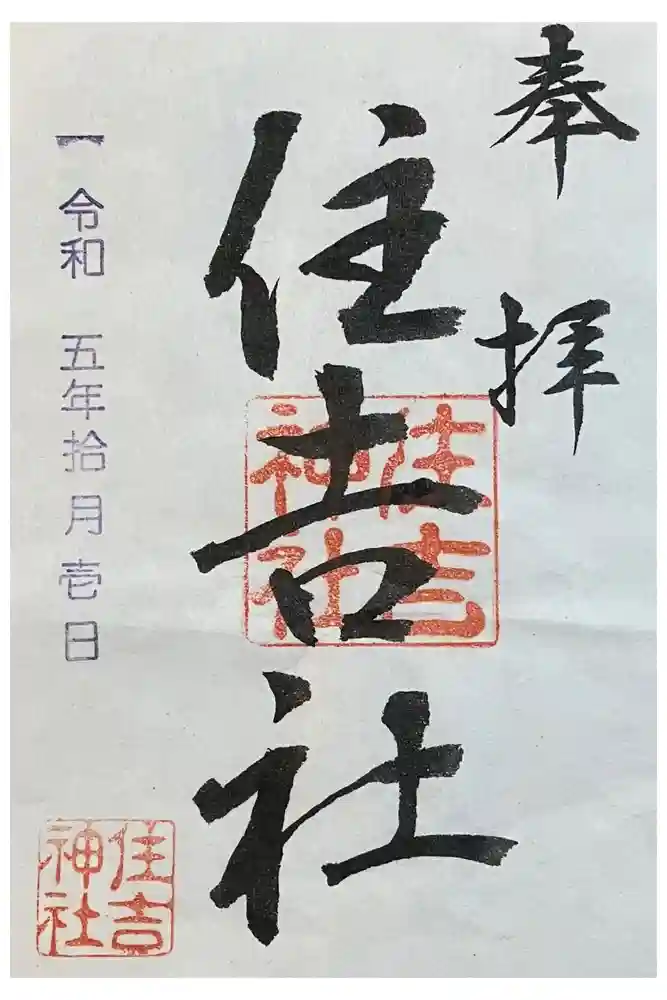 奉拝
住吉社
住吉神社
令和五年拾月壱日
住吉神社